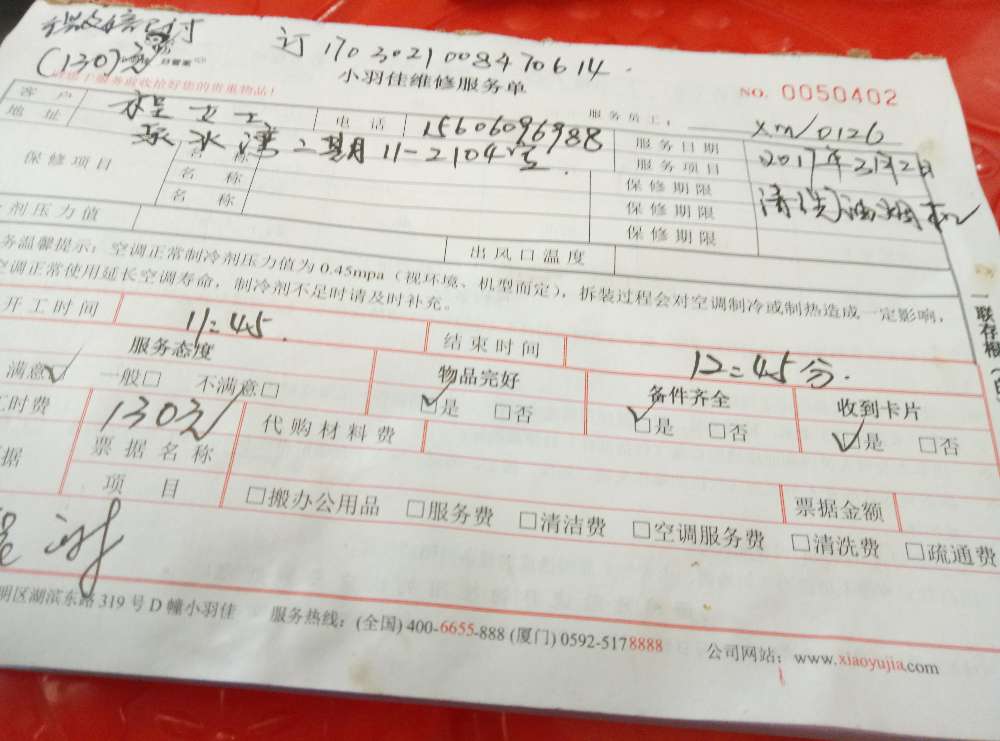 订 170302100847 0614.
(130元)
小羽佳维修服务单
NO. 0050402
请您于服务前收拾好您的贵重物品!
服务员工: xm/0126
客 户 程女士 电 话 15606096988 服务日期 2017年3月2日
地 址 二期11-2104室. 服务项目 清洗油烟机
保修项目 名 称 保修期限
名 称 保修期限
名 称 保修期限
剂压力值 出风口温度
务温馨提示: 空调正常制冷剂压力值为0.45mpa (视环境、机型而定), 拆装过程会对空调制冷或制热造成一定影响,
空调正常使用延长空调寿命, 制冷剂不足时请及时补充。
开工时间 11:45 结束时间 12:45分.
服务态度 物品完好 备件齐全 收到卡片
满意✓ 一般□ 不满意□ ☑是 □否 ☑是 □否 ☑是 □否
工时费 130元 代购材料费
据 票据名称
项 目 □搬办公用品 □服务费 □清洁费 □空调服务费 □清洗费 □疏通费 票据金额
明区湖滨东路319号D幢小羽佳 服务热线: (全国) 400-6655-888 (厦门) 0592-5178888 公司网站: www.xiaoyujia.com
一联存根